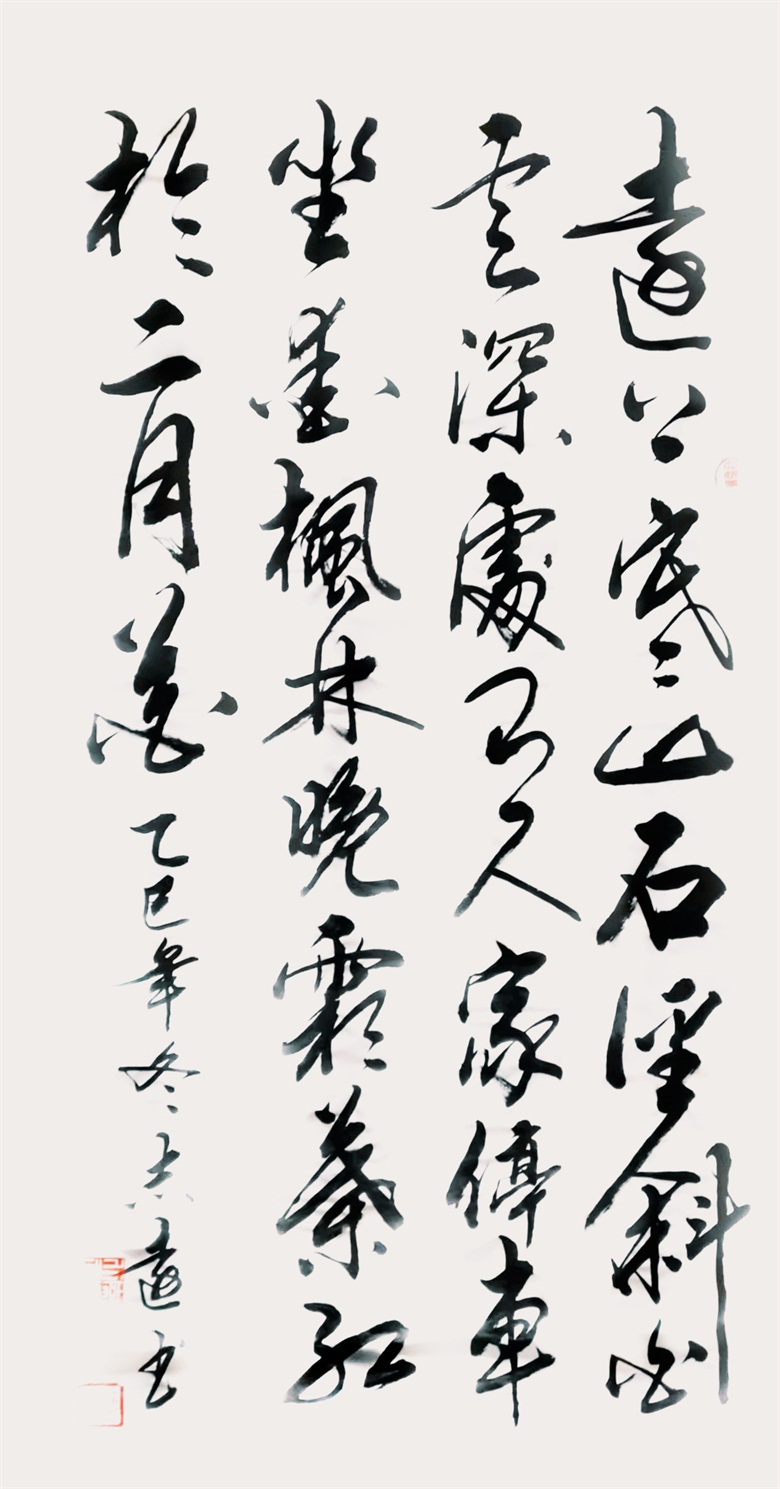 遠上寒山石徑斜白
雲深處有人家停車
坐愛楓林晚霜葉紅
於二月花乙巳年冬志遠书